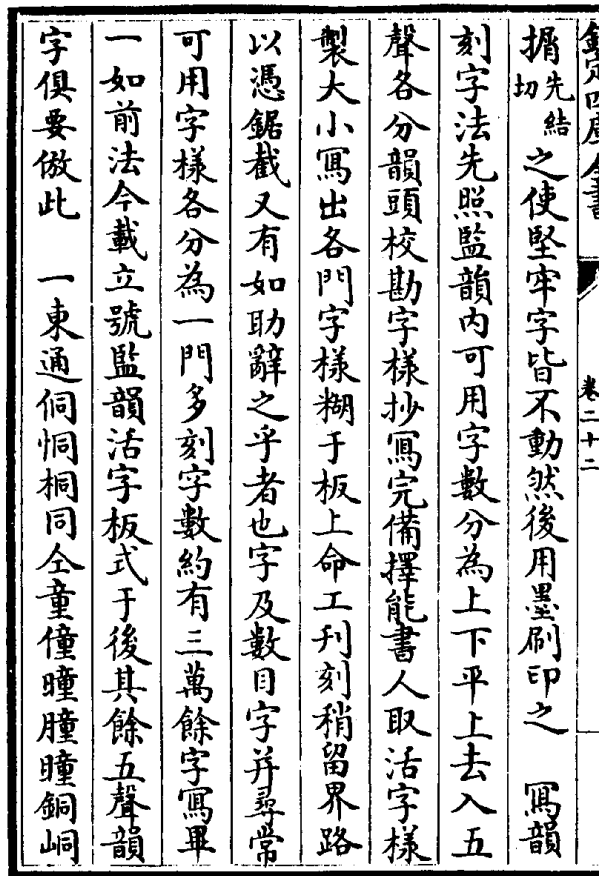 欽定四庫全書
卷二十二
搙先結切之使堅牢字皆不動然後用墨刷印之　寫韻
刻字法先照監韻内可用字數分為上下平上去入五
聲各分韻頭校勘字様抄寫完備擇能書人取活字様
製大小寫出各門字様糊于板上命工刋刻稍留界路
以憑鋸截又有如助辭之乎者也字及數目字并尋常
可用字様各分為一門多刻字數約有三萬餘字寫畢
一如前法今載立號監韻活字板式于後其餘五聲韻
字俱要倣此　一東通侗恫桐同仝童僮曈朣瞳銅峒